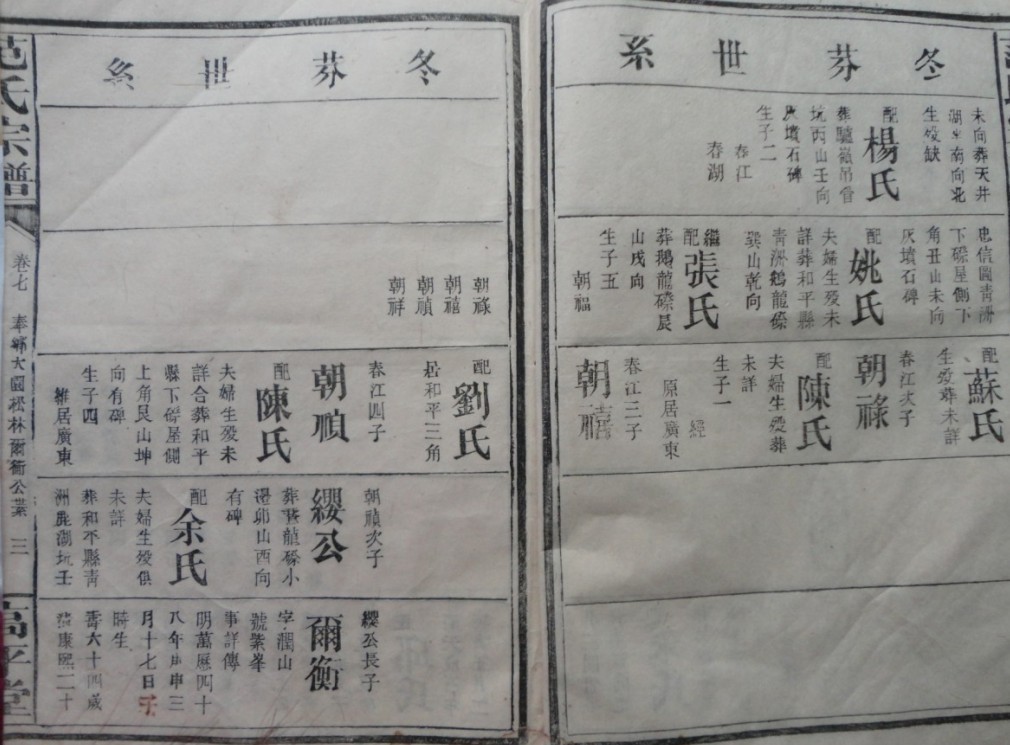 冬芬世系
未向葬天井
湖坐南向北
生殁缺
配
楊氏
坑丙山壬向
灰墳石碑
生子二
春江
春湖
忠信圖青洲
下磜屋側下
角丑山未向
灰墳石碑
配
姚氏
夫婦生殁未
詳葬和平縣
青洲鵝龍磜
巽山乾向
繼配
張氏
葬鵝龍磜辰
山戌向
生子五
朝福
配
蘇氏
生殁葬未詳
春江次子
朝祿
配
陳氏
夫婦生殁葬
未詳
生子一
經
原居廣東
春江三子
朝禧
冬芬世系
朝祿
朝禧
朝禎
朝祥
配
劉氏
居和平三角
春江四子
朝禎
配
陳氏
夫婦生殁未
詳合葬和平
縣下磜屋側
上角艮山坤
向有碑
生子四
雒居廣東
朝禎次子
纓公
龍磜小
遷卯山酉向
有碑
配
余氏
夫婦生殁俱
未詳
葬和平縣青
洲鹿湖坑壬
纓公長子
爾衡
字潤山
號紫峯
事詳傳
明萬曆四十
八年庚申三
月十七日子
時生
壽六十四歲
康熙二十
范氏宗譜
卷七
奉鄉大園松林爾衡公業
三
高平堂